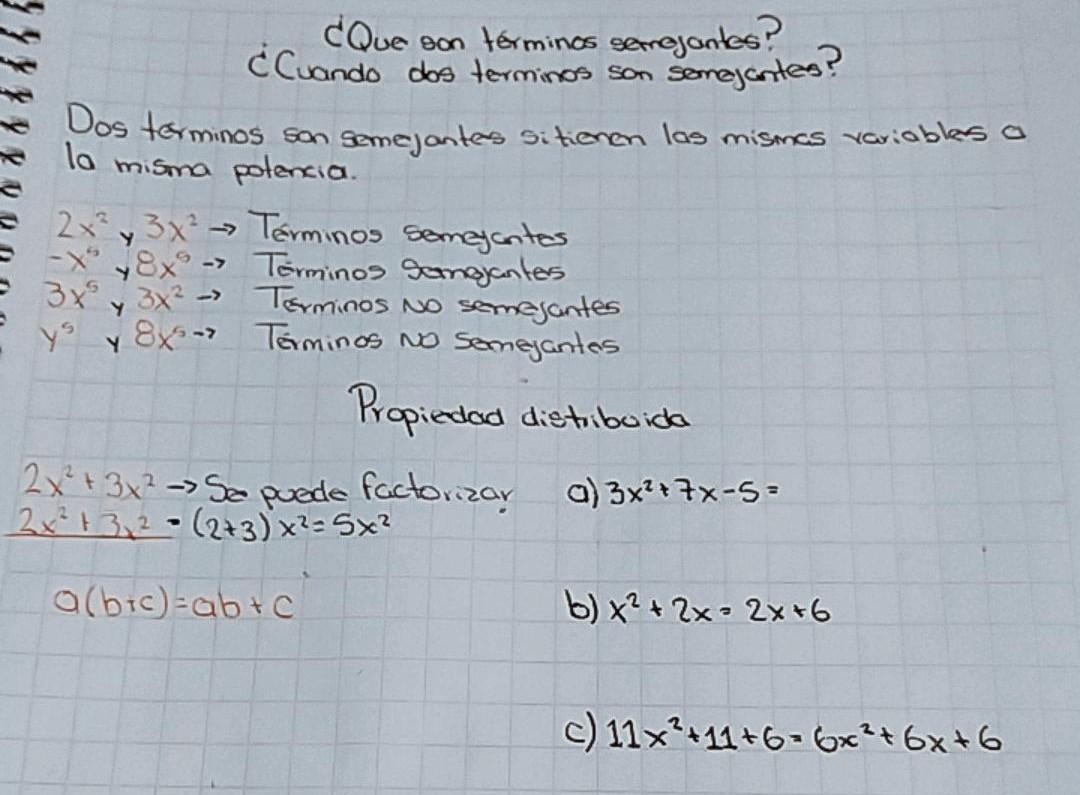 ¿Que son términos semejantes?
¿Cuando dos terminos son semejantes?
Dos términos son semejantes si tienen las mismas variables a
la misma potencia.
2x² y 3x² → Términos semejantes
-x⁵ y 8x⁵ → Términos semejantes
3x⁵ y 3x² → Términos NO semejantes
y⁵ y 8x⁵ → Términos NO semejantes
Propiedad distribuida
2x² + 3x² → Se puede factorizar
2x² + 3x² = (2+3) x² = 5x²
a(b+c)=ab+c
a) 3x²+7x-5=
b) x² + 2x = 2x+6
c) 11x²+11+6=6x²+6x+6